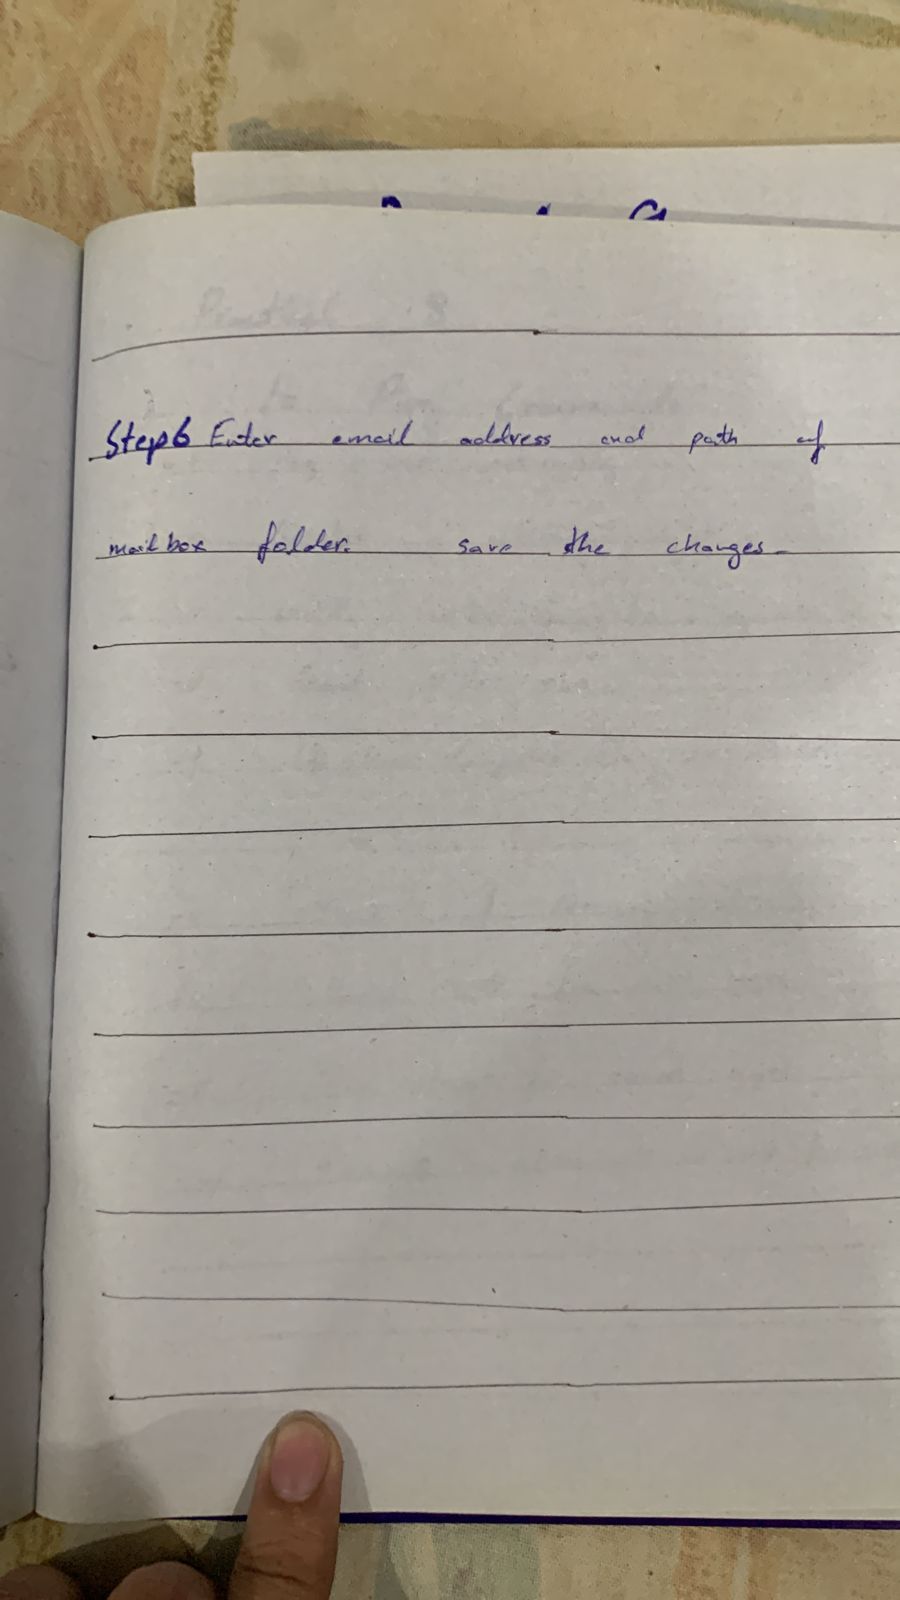 Step 6 Enter email address and path of
mailbox folder. save the changes.